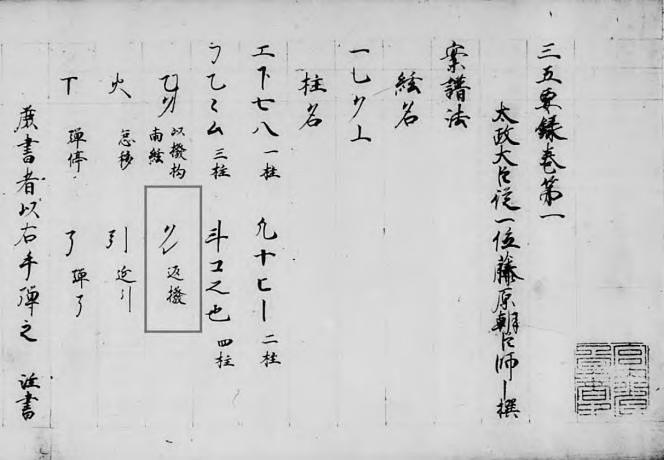 三五要録巻第一
太政大臣従一位藤原朝臣師ー撰
案譜法
絃名
一乚ク上
柱名
工下七八一柱 九十匕丨二柱
フ乙ミム三柱 斗コ之也四柱
以撥拘
南絃 返撥
火急移 引延引
丅弾停 了弾了
書者以右手弾之 注書